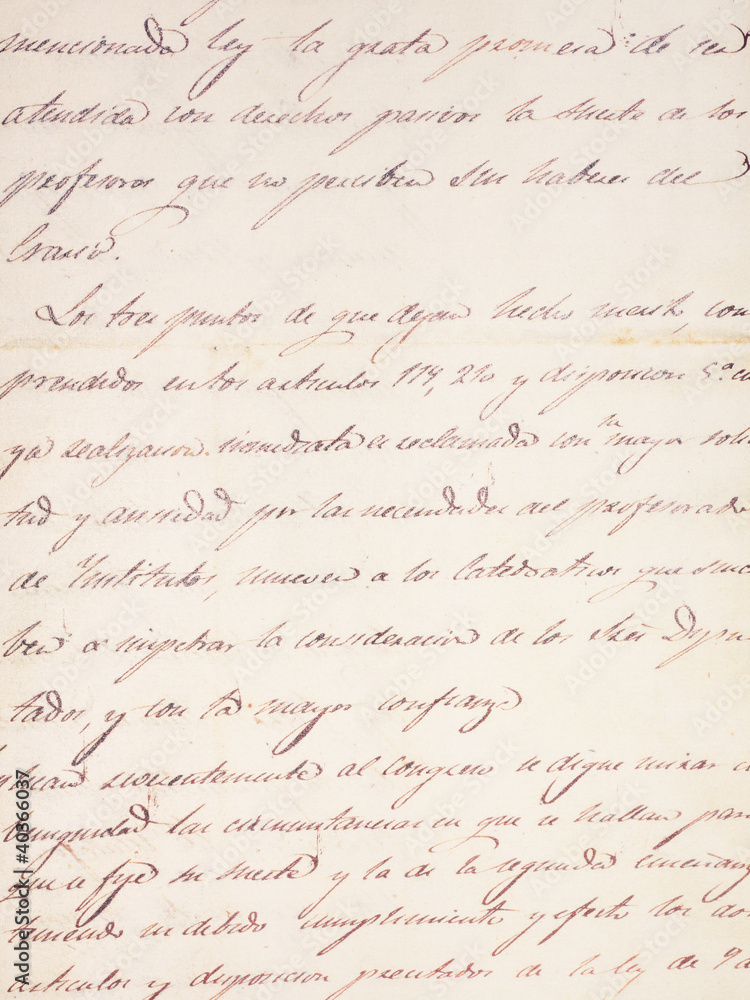 mencionada ley la grata promesa de ser
atendida con derechos pasivos la suerte de los
profesores que no perciben sus haberes del
Erario.
Los tres puntos de que dejan hecho merito, com
prendidos en los articulos 114, 210 y disposicion 5.ª cu
ya realizacion inmediata es reclamada con la mayor solici
tud y ansiedad por las necesidades del profesorado
de Institutos, mueven a los Catedraticos que suscri
ben a impetrar la consideracion de los Sres Dipu
tados, y con la mayor confianza
reverentemente al Congreso se digne mirar
benignidad las circunstancias en que se hallan para
que se fije su suerte y la de la segunda enseñanza
teniendo su debido cumplimiento y efecto los dos
articulos y disposicion precitados de la ley de 9
Adobe Stock | #40366037
Adobe Stock